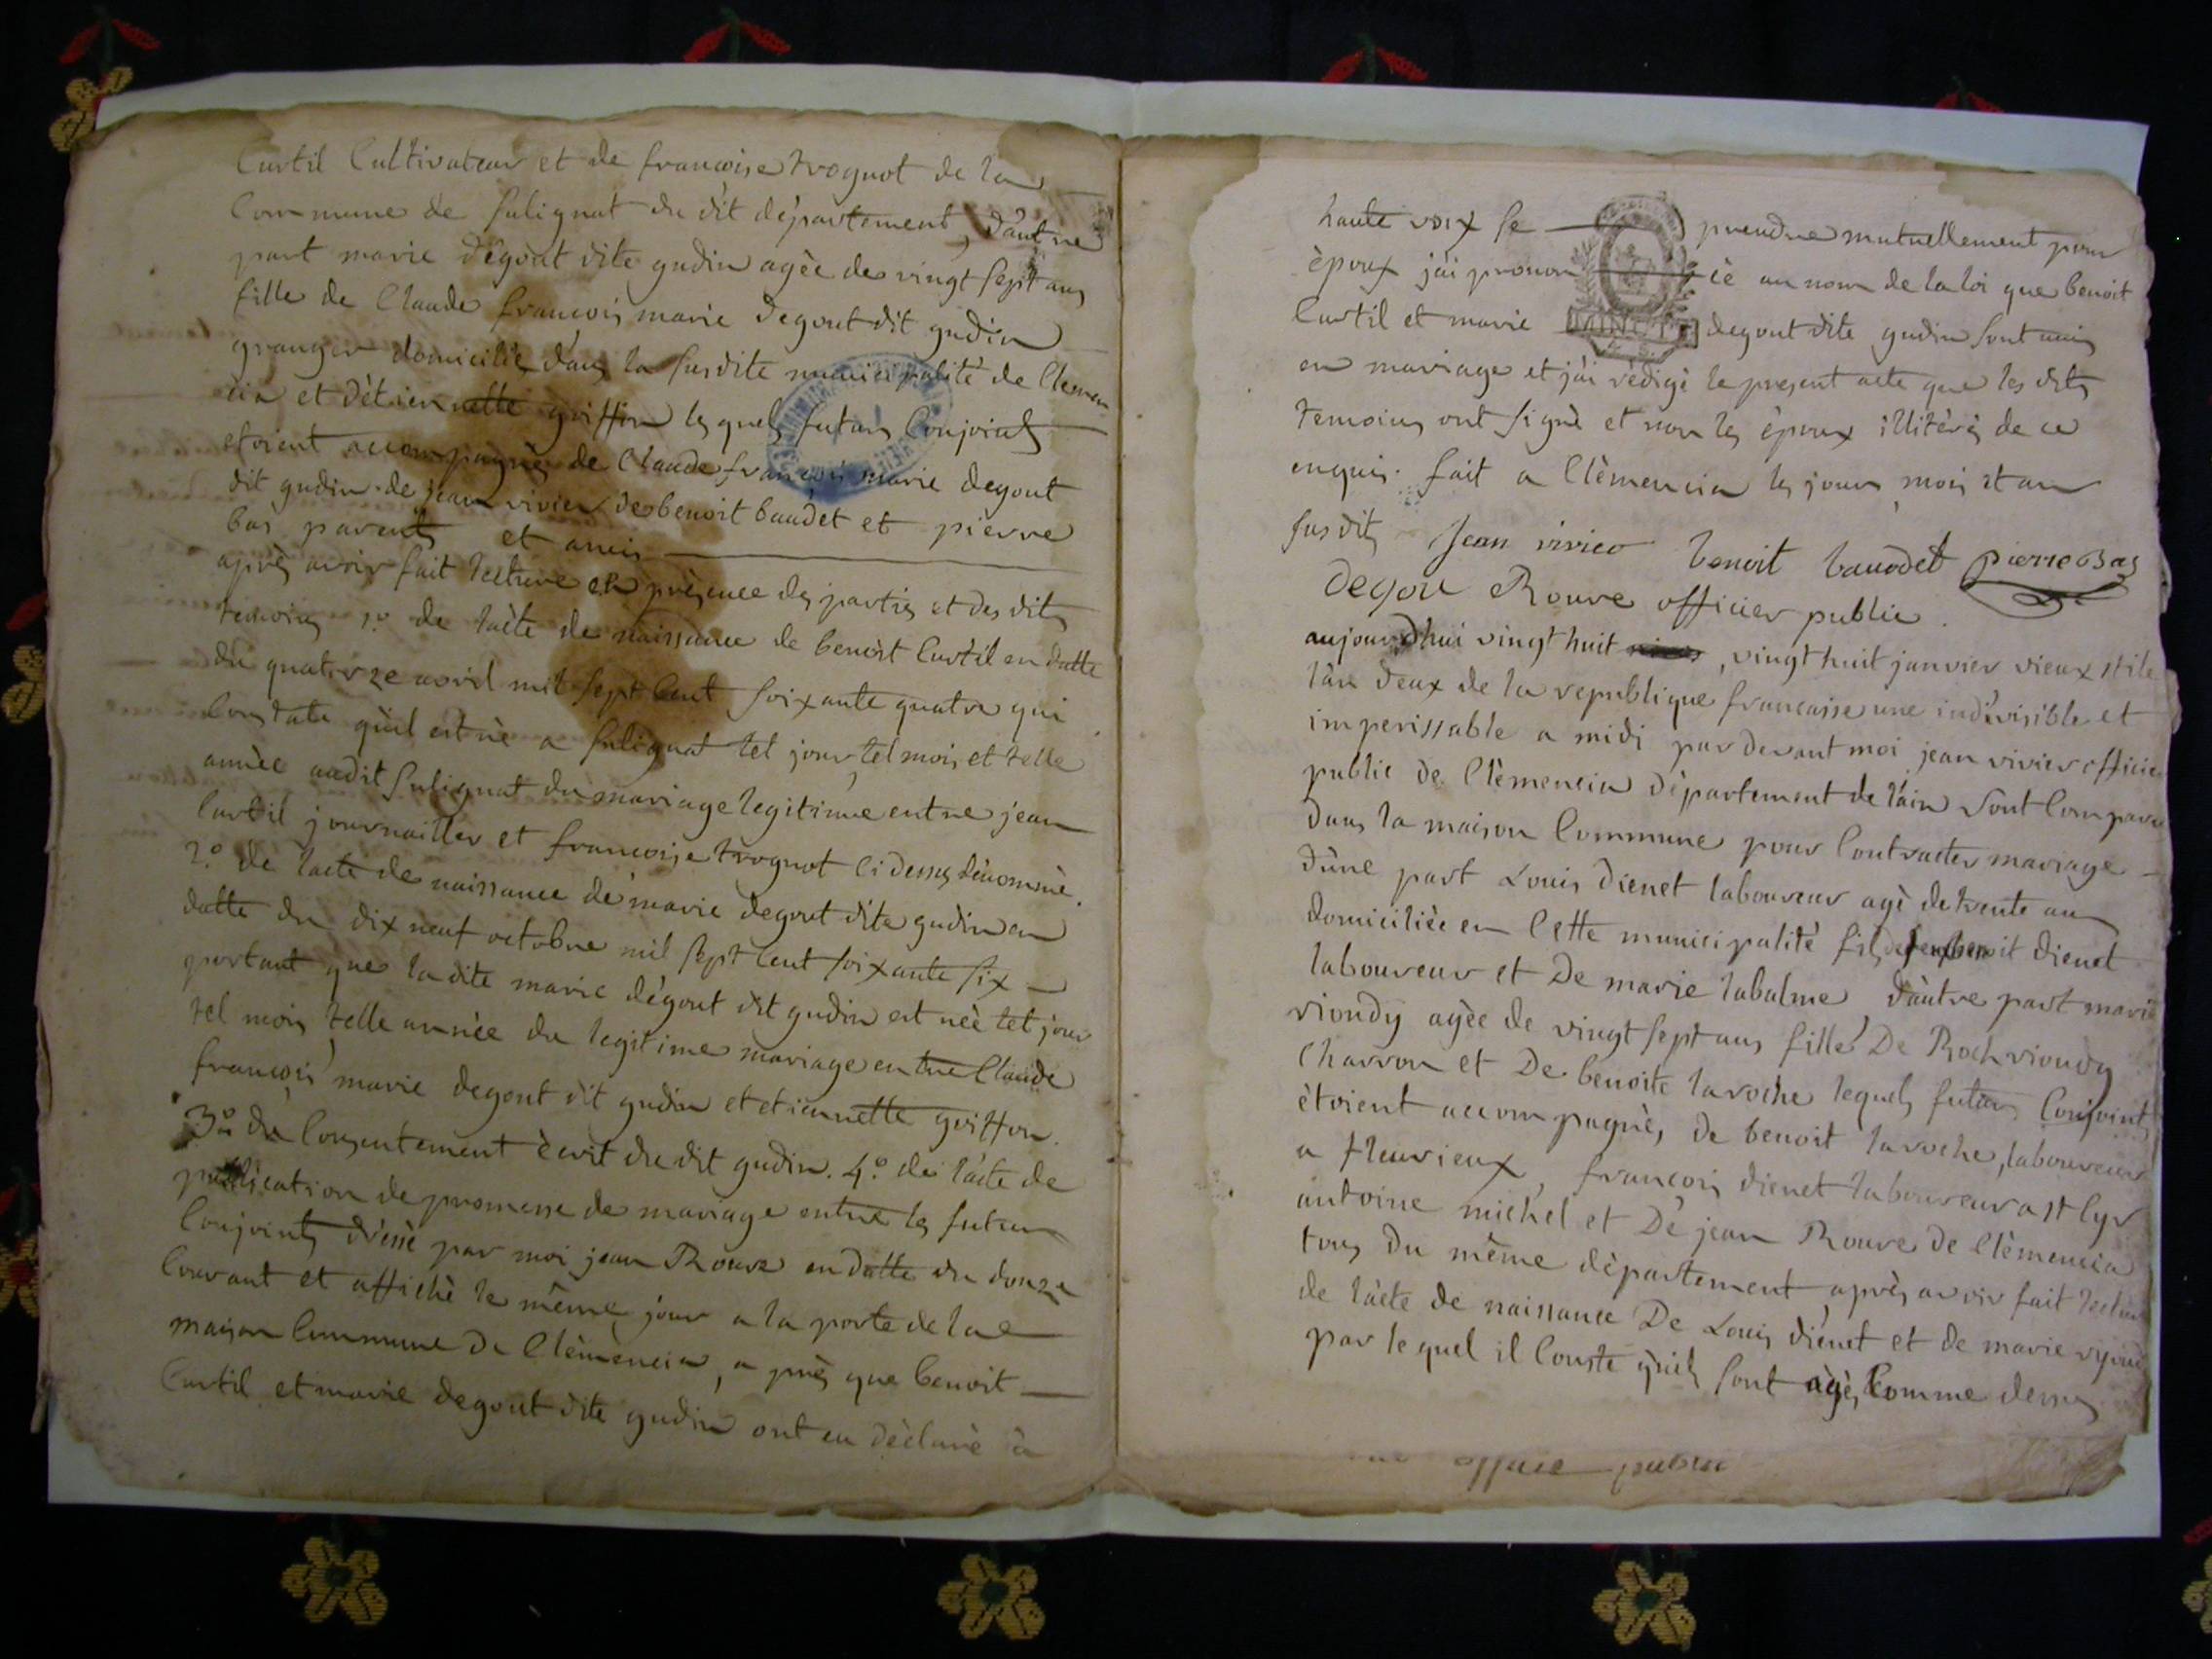 Curtil Cultivateur et de francoise trognot de la
Commune de Sulignat du dit département, d'autre
part marie dégout dite gudin agèe de vingt sept ans
fille de Claude francois marie degout dit gudin
granger domicilié dans la susdite municipalité de Clemen
cia et d'étiennette griffon lesquels futurs Conjoints
etoient accompagnès de Claude francois marie degout
dit gudin de jean vivier de benoit baudet et pierre
bas parents et amis
après avoir fait lecture en prèsence des parties et des dits
temoins 1º de lacte de naissance de benoit Curtil en datte
du quatorze avril mil sept Cent soixante quatre qui
Constate qu'il est nè a Sulignat tel jour, tel mois et telle
annèe audit Sulignat du mariage legitime entre jean
Curtil journailler et francoise trognot Ci dessus dènommè.
2º de lacte de naissance de marie degout dite gudin en
datte du dix neuf octobre mil sept Cent soixante six
portant que la dite marie dégout dit gudin est neè tel jour
tel mois telle annèe du legitime mariage entre Claude
francois marie degout dit gudin et etiennette griffon.
3º du Consentement ècrit du dit gudin. 4º de l'acte de
publication de promesse de mariage entre les futurs
Conjoints drèssè par moi jean Rouve en datte du douze
Courant et affichè le même jour a la porte de la
maison Commune de Clèmencia, a près que benoit
Curtil et marie degout dite gudin ont eu dèclarè à
haute voix se prendre mutuellement pour
èpoux j'ai pronon cè au nom de la loi que benoit
Curtil et marie degout dite gudin sont unis
MINUTE
en mariage et j'ai rèdigè le present acte que les dits
temoins ont signè et non les èpoux illitèrés de ce
enquis. fait a Clèmencia les jour mois et an
susdits Jean vivier benoit bauodet pierre bas
degou Rouve officier public.
aujourdhui vingt huit , vingt huit janvier vieux stile
l'an deux de la republique francaisse une indivisible et
imperissable a midi par devant moi jean vivier officier
public de Clèmencia dèpartement de l'ain sont Comparu
dans la maison Commune pour Contracter mariage
d'une part Louis dienet laboureur agè de trente ans
domicilièe en Cette municipalité fils de feu benoit dienet
laboureur et De marie labalme, d'autre part marie
vioudy agèe de vingt sept ans fille De Roch vioudy
Charron et De benoite laroche lequels futurs Conjoints
ètoient accompagnès de benoit laroche, laboureur
a fleurieux, francois dienet laboureur a st Cyr
antoine michel et De jean Rouve de Clèmencia
tous du même dèpartement, après avoir fait lecture
de l'acte de naissance De Louis dienet et de marie
par le quel il Conste quils sont agès Comme dessus
office public